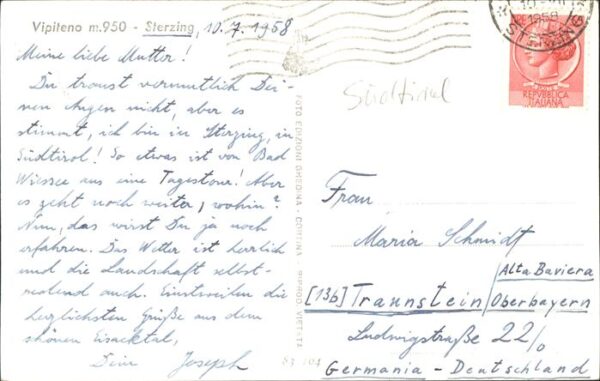 Vipiteno m.950 - Sterzing 10.7.1958
Meine liebe Mutter!
Du traust vermutlich Dei-
nen Augen nicht, aber es
stimmt, ich bin in Sterzing, in
Südtirol! So etwas ist von Bad
Wiessee aus eine Tagestour! Aber
es geht noch weiter, wohin?
Nun, das wirst Du ja noch
erfahren. Das Wetter ist herrlich
und die Landschaft selbst-
redend auch. Einstweilen die
herzlichsten Grüße aus dem
schönen Eisacktal,
Dein Joseph
FOTO EDIZIONI GHEDINA - CORTINA
83 104
Südtirol
1958
REPVBBLICA
ITALIANA
Frau
Maria Schmidt
Alta Baviera
[13b] Traunstein/Oberbayern
Ludwigstraße 22/0
Germania - Deutschland